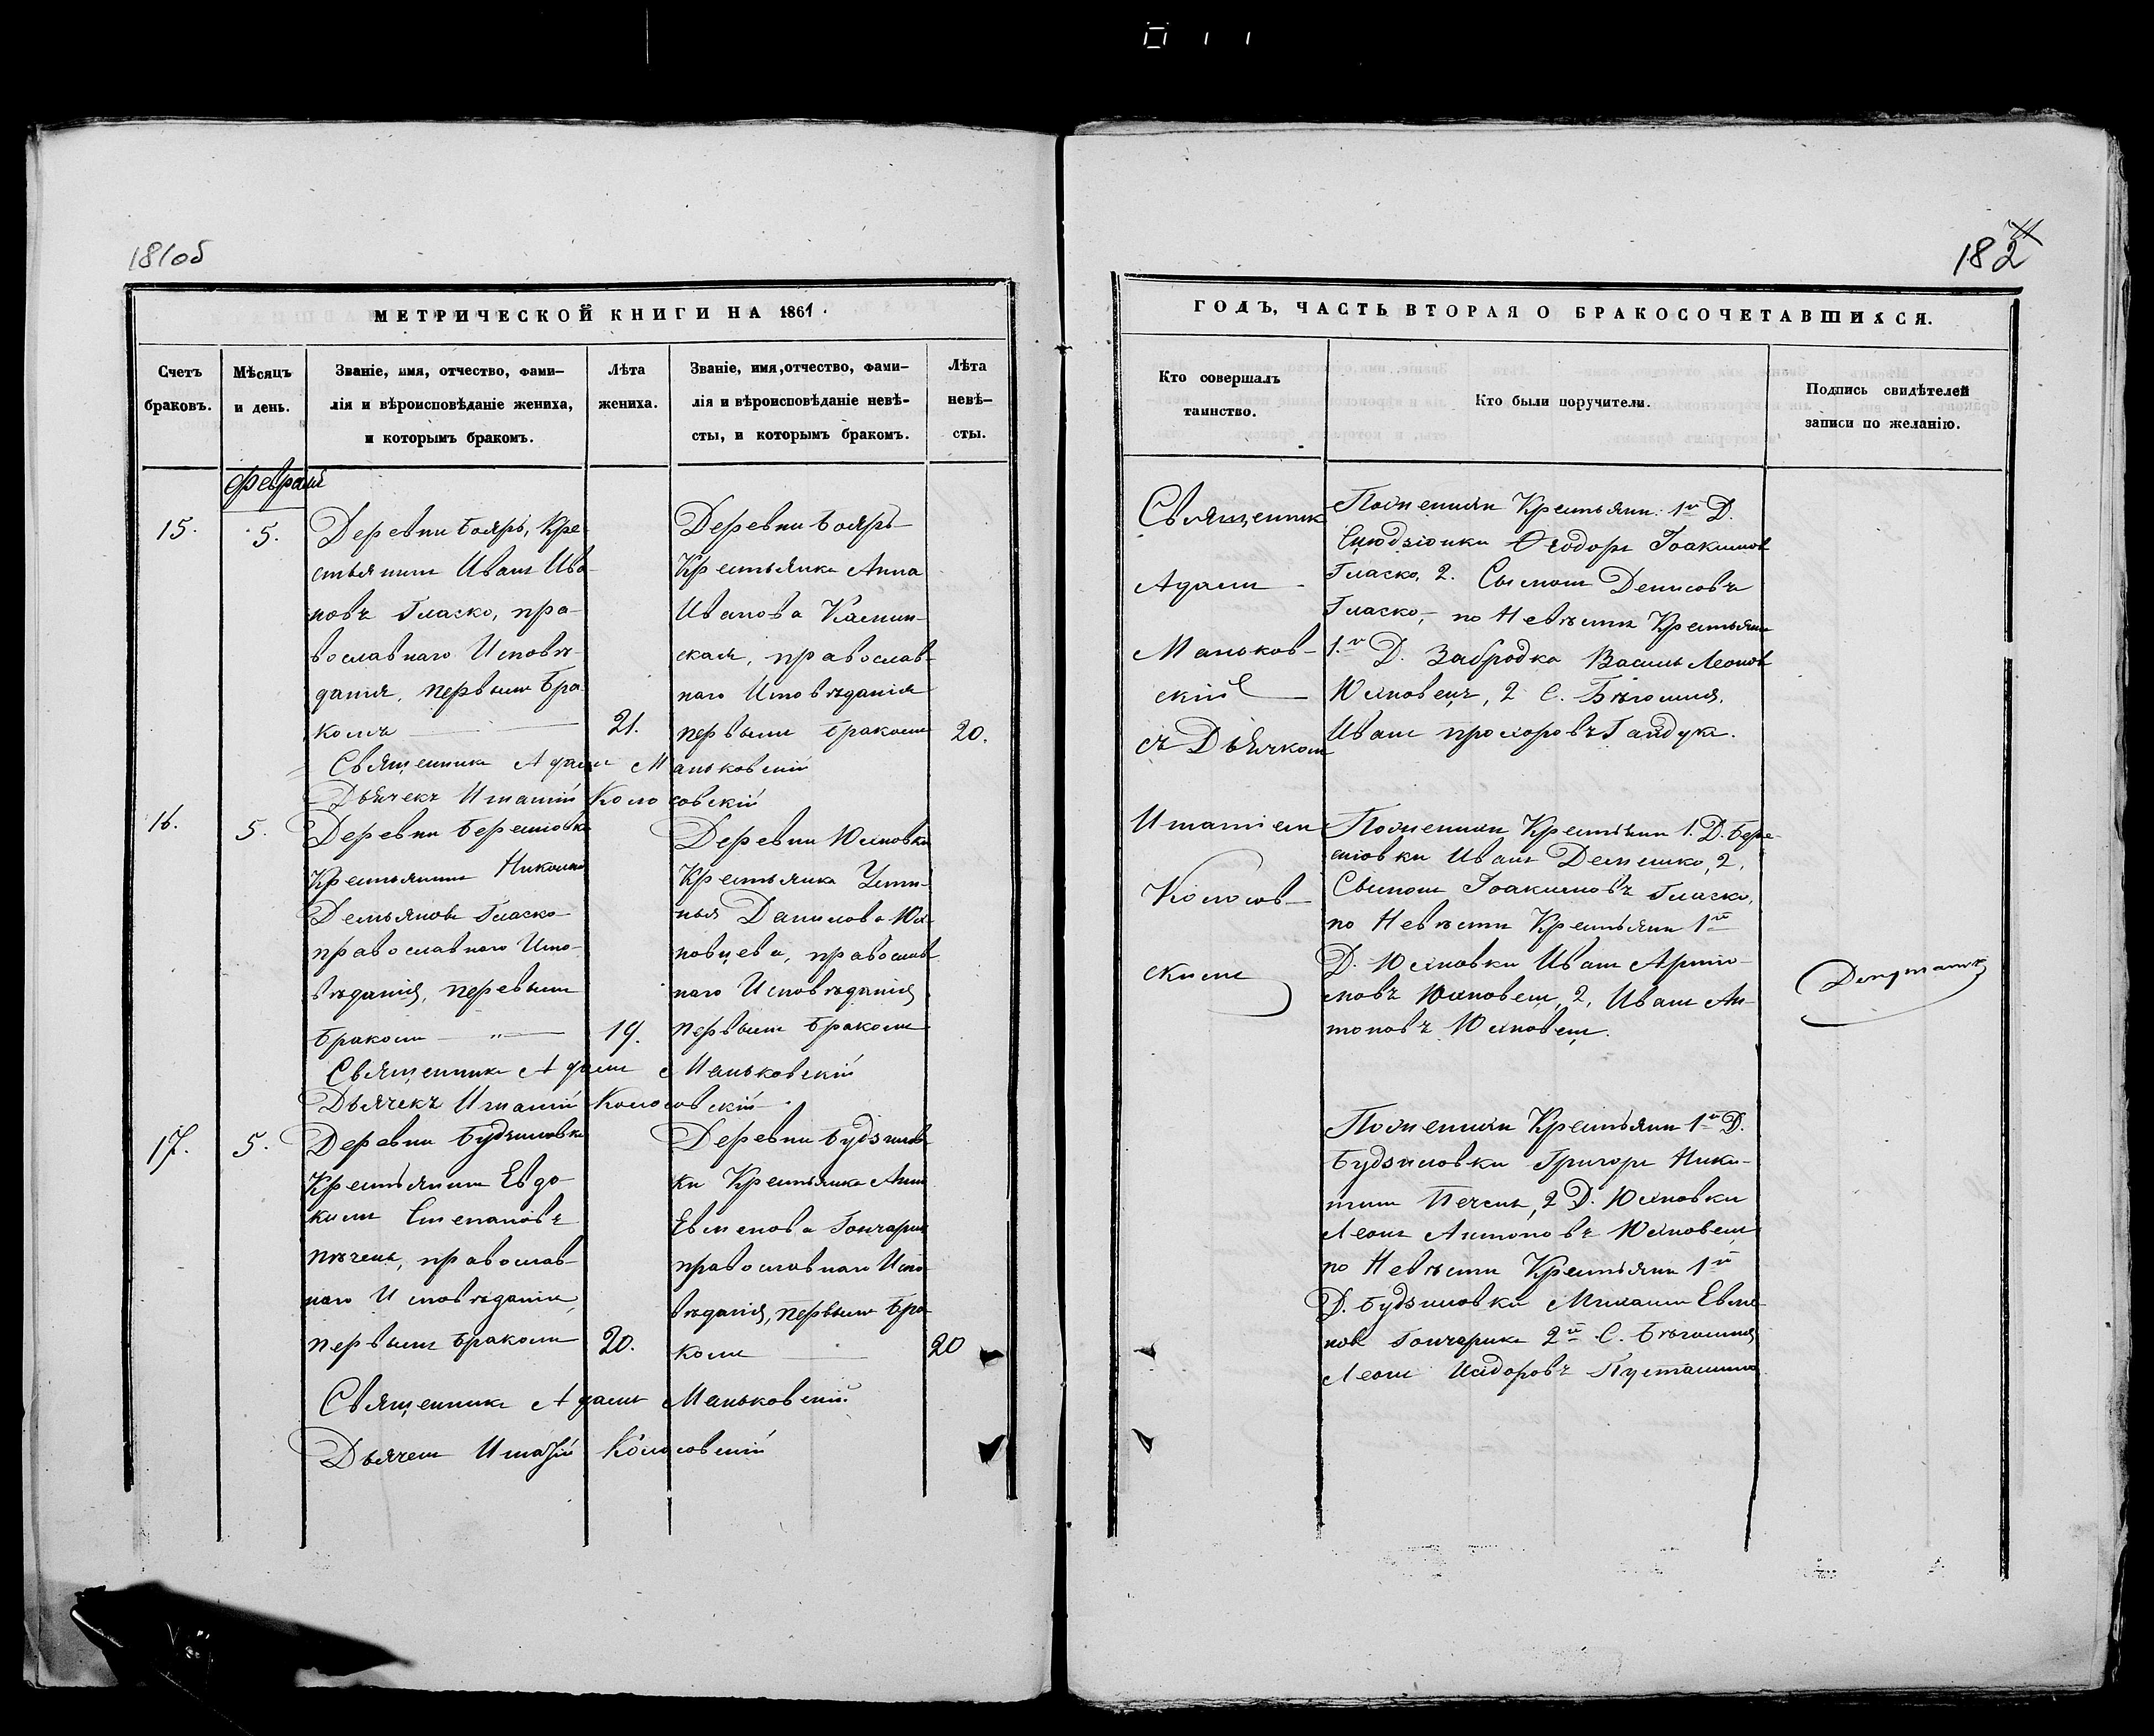 181об
МЕТРИЧЕСКОЙ КНИГИ НА 1861.
Счетъ браковъ.
Мѣсяцъ и день.
Званіе, имя, отчество, фами-
лія и вѣроисповѣданіе жениха,
и которымъ бракомъ.
Лѣта
жениха.
Званіе, имя, отчество, фами-
лія и вѣроисповѣданіе невѣ-
сты, и которымъ бракомъ.
Лѣта
невѣ-
сты.
Февраля
15.
5.
Деревни Бояръ, Кре-
стьянинъ Иванъ Ива-
новъ Гласко, пра-
вославнаго Исповѣ-
данія, первымъ бра-
комъ
21.
Деревни Бояръ
Крестьянка Анна
Иванова Камин-
ская, православ-
наго Исповѣданія
первымъ бракомъ
20.
Священникъ Адамъ Маньковскій
Дьячекъ Игнатій Колосовскій
16.
5.
Деревни Берешовки
Крестьянинъ Николай
Демьяновъ Гласко
православнаго Испо-
вѣданія, первымъ
бракомъ — „ —
19.
Деревни Юхновки
Крестьянка Усти-
нья Данилова Юх-
новцева, православ-
наго Исповѣданія
первымъ бракомъ
Священникъ Адамъ Маньковскій
Дьячекъ Игнатій Колосовскій
17.
5.
Деревни Будзиловки
Крестьянинъ Евдо-
кимъ Степановъ
Пѣчень, православ-
наго Исповѣданія,
первымъ бракомъ
20.
Деревни Будзилов-
ки Крестьянка Анна
Евменова Гончарик
православнаго Испо-
вѣданія, первымъ бра-
комъ
20
Священникъ Адамъ Маньковскій
Дьячекъ Игнатій Колосовскій
182
ГОДЪ, ЧАСТЬ ВТОРАЯ О БРАКОСОЧЕТАВШИХСЯ.
Кто совершалъ
таинство.
Кто были поручители.
Подпись свидѣтелей
записи по желанію.
Священникъ
Адамъ
Маньков-
скій
съ Дьячкомъ
Игнатіемъ
Колосов-
скимъ
По женихѣ Крестьяне: 1й Д.
Ѳеодоръ Іоакимовъ
Гласко, 2. Денисовъ
Гласко, по Невѣстѣ Крестьяне
1.й Д. Забродка Василь Леоновъ
Юхновецъ, 2 С. Бѣгомля,
Иванъ Прохоровъ Гайдукъ.
По женихѣ Крестьяне 1. Д. Бере-
шовки Иванъ Демешко, 2,
Іоакимовъ Гласко,
по Невѣстѣ Крестьяне 1й
Д. Юхновки Иванъ Артю-
мовъ Юхновецъ, 2, Иванъ Ан-
тоновъ Юхновецъ.
По женихѣ Крестьяне 1й Д.
Будзиловки Григорій Ники-
тинъ Печень, 2 Д. Юхновки
Леонъ Антоновъ Юхновецъ
по Невѣстѣ Крестьяне 1й
Д. Будзиловки Михаилъ Евме-
новъ Гончарикъ 2й С. Бѣгомля
Леонъ Исидоровъ